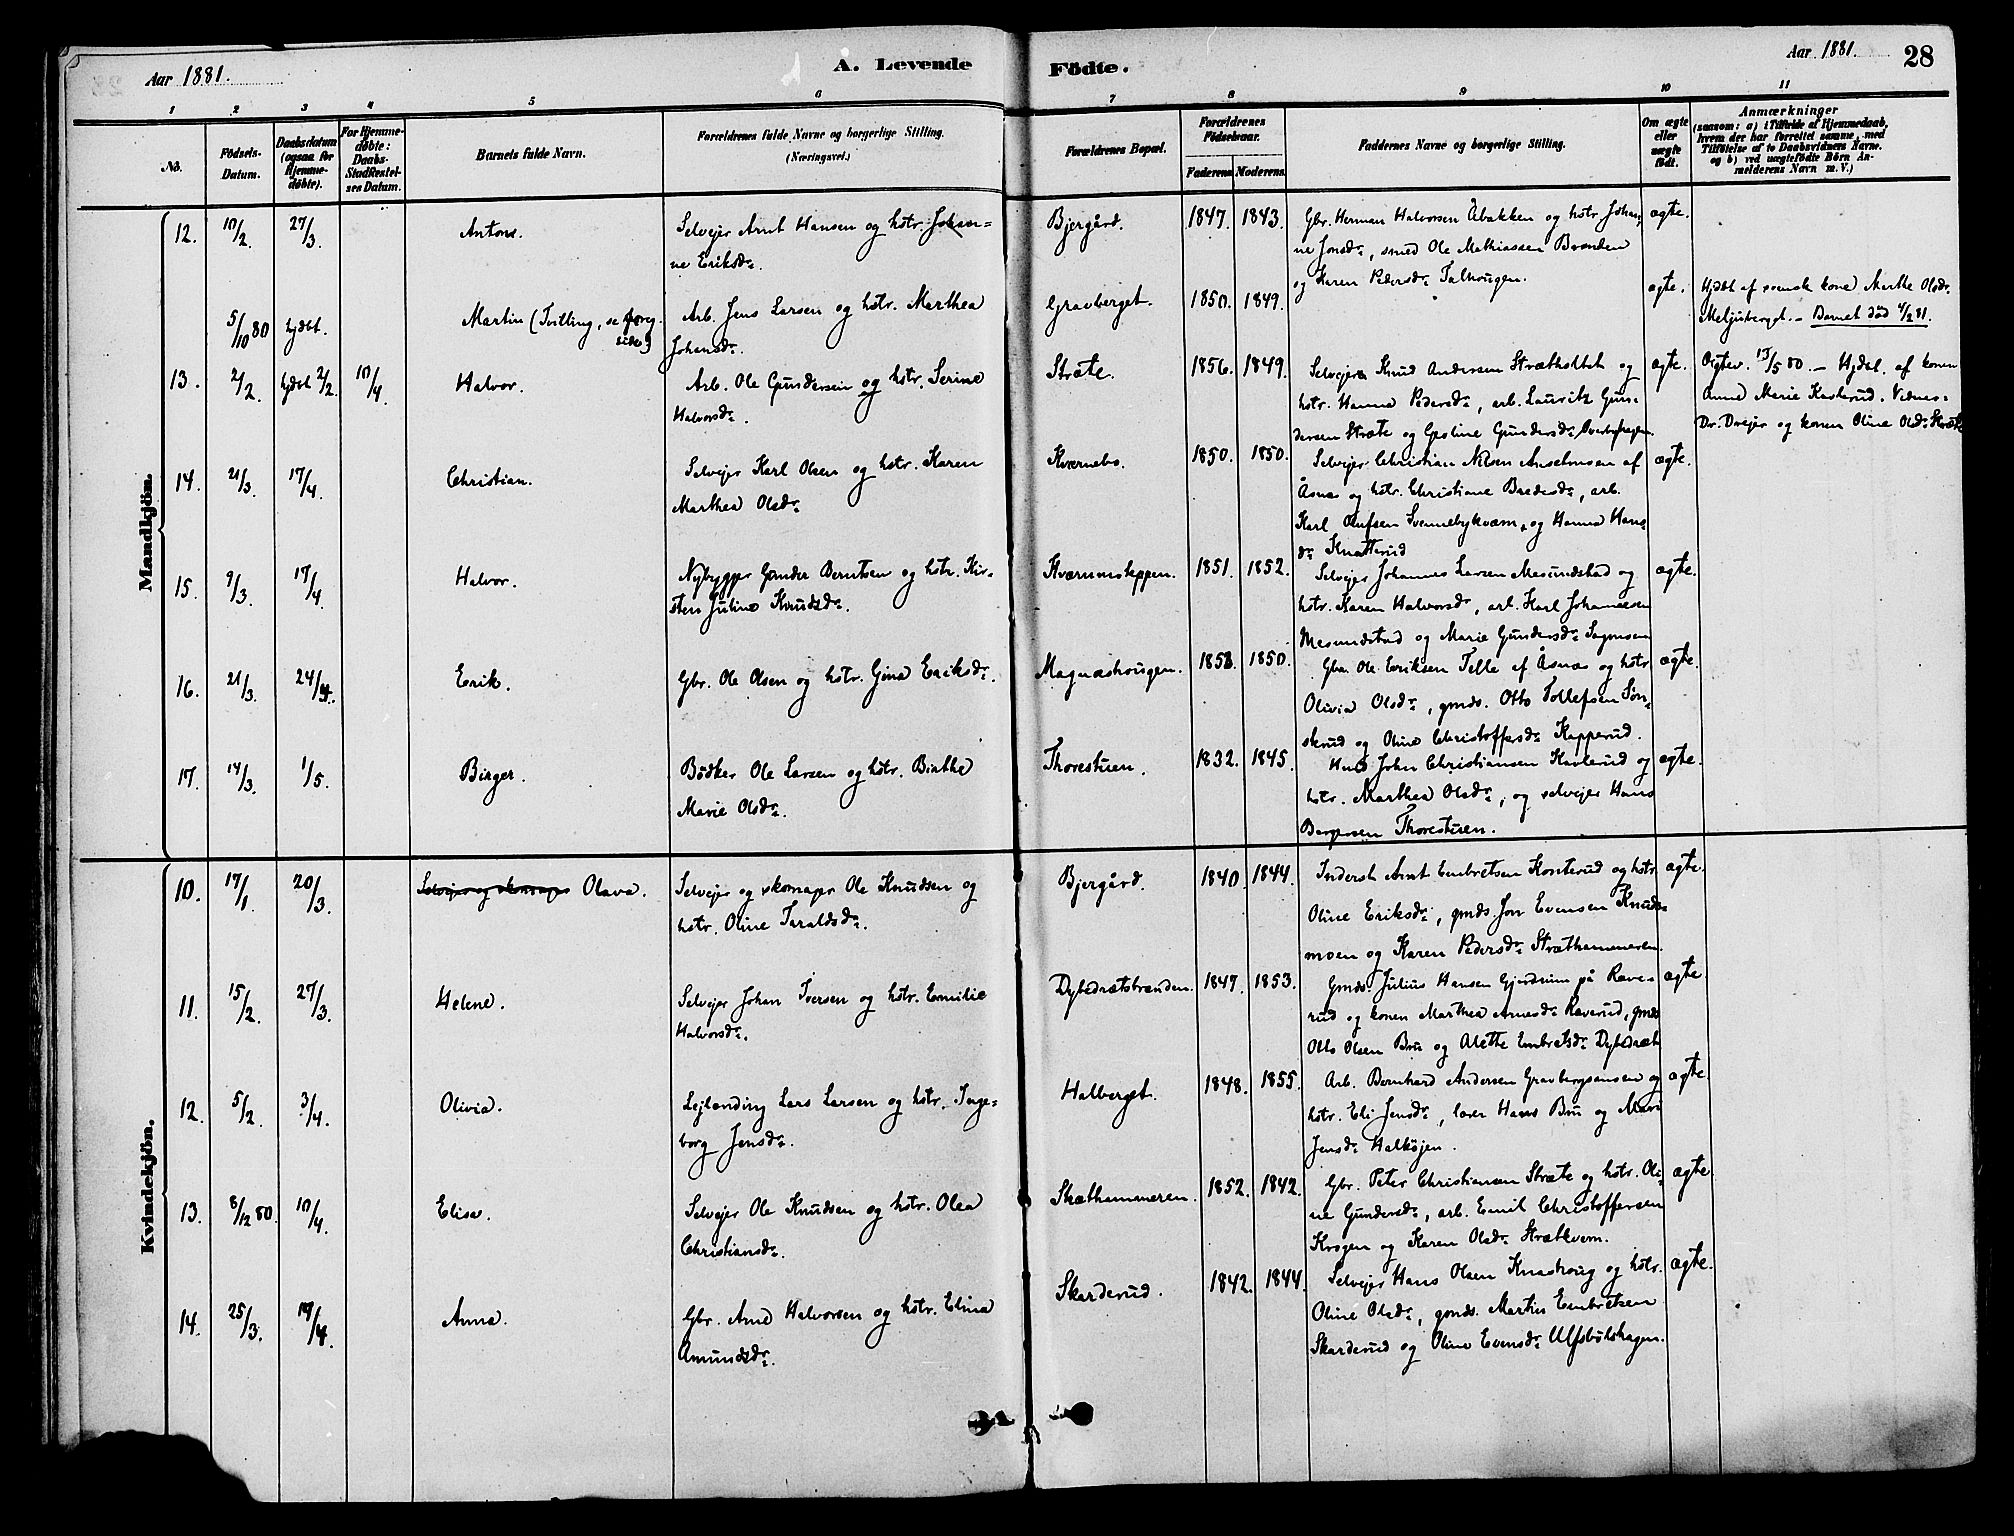 Aar 1881.
A. Levende Födte.
Aar 1881.
28
1 2 3 4 5 6 7 8 9 10 11
No.
Födsels-Datum.
Daabsdatum (ogsaa for Hjemme-döbte).
For Hjemme-döbte: Daabs-Stadfestel-ses Datum.
Barnets fulde Navn.
Forældrenes fulde Navne og borgerlige Stilling. (Næringsvei.)
Forældrenes Bopæl.
Forældrenes Födselsaar.
Faderens Moderens
Faddernes Navne og borgerlige Stilling.
Om ægte eller uægte födt.
Anmærkninger
(saasom: a) i Tilfælde af Hjemmedaab,
hvem der har forrettet samme, med
Tilföielse af to Daabsvidners Navne.
og b) ved uægtefödte Börn An-
melderens Navn m. V.)
Mandkjön.
12. 10/2. 27/3. Antons. Selvejer Arnt Hansen og hstr. Johan-
ne Eriksdr. Bjergård. 1847. 1843. Gbr. Herman Halvorsen Åbakken og hstr. Johan-
ne Jonsdr., smed Ole Mathiassen Branden
og Karen Pedersdr. Talhougen. ægte.
5/10 80 hjdbt. Martin (Tvilling, se foreg. side) Arb. Jens Larsen og hstr. Marthea
Johansdr. Gravberget. 1850. 1849. ægte. Hjdbt af svensk kone Marthe Olsdr.
Meljuberget. – Barnet död 4/2 81.
13. 2/2. hjdbt 2/2. 10/4. Halvor. Arb. Ole Gundersen og hstr. Serine
Halvorsdr. Stræte. 1856. 1849. Selvejer Knud Andersen Strætholtet og
hstr. Hanna Pedersdr., arb. Lauritz Gun-
dersen Stræte og Gustine Gundersdr. Overbyhagen. ægte. Ægtev. 15/5 80. – Hjdbt. af konen
Anne Marie Kasterud. Vidnes-
Dr. Drejer og konen Oline Olsdr. Stræte
14. 21/3. 17/4. Christian. Selvejer Karl Olsen og hstr. Karen
Marthea Olsdr. Kvernebo. 1850. 1850. Selvejer Christian Nilsen Anselmsen af
Åsnæs og hstr. Christiane Bredesdr., arb.
Karl Olufsen Svennebykvæm, og Hanna Hans-
dr. Knatterud ægte.
15. 9/3. 17/4. Halvor. Nybygger Gunder Berntsen og hstr. Kir-
sten Juline Knudsdr. Kværnmskppen. 1851. 1852. Selvejer Johannes Larsen Mesundstad og
hstr. Karen Halvorsdr., arb. Karl Johannesen
Mesundstad og Marie Gundersdr. Sagmoen ægte.
16. 21/3. 24/4. Erik. Gbr. Ole Olsen og hstr. Gina Eriksdr. Magnæshougen. 1852. 1850. Gbr. Ole Eriksen Telle af Åsnæs og hstr.
Olivia Olsdr., gmds. Otto Tollefsen Søn-
skrud og Oline Christoffersdr. Kapperud. ægte.
17. 14/3. 1/5. Birger. Bödker Ole Larsen og hstr. Birthe
Marie Olsdr. Thorestuen. 1832. 1845. John Christiansen Kaslerud og
hstr. Marthea Olsdr., og selvejer Hans
Bergersen Thorestuen. ægte.
Kvindekjön.
10. 17/1. 20/3. Selvejer og skomager Olava. Selvejer og skomager Ole Knudsen og
hstr. Oline Taraldsdr. Bjergård. 1840. 1844. Inderst Arnt Embretsen Konterud og hstr.
Oline Eriksdr., gmds. Jon Evensen Knuds-
moen og Karen Pedersdr. Stræthammeren. ægte.
11. 15/2. 27/3. Helene. Selvejer Johan Iversen og hstr. Emilie
Halvorsdr. Dybedrætstranden. 1847. 1853. Gmds. Julius Hansen Gjerdrum på Rave-
rud og konen Marthea Arnesdr. Raverud, gmds
Otto Olsen Bru og Alette Embretsdr. Dybedræt ægte.
12. 5/2. 3/4. Olivia. Lejlending Lars Larsen og hstr. Inge-
borg Jensdr. Halberget. 1848. 1855. Arb. Bernhard Andersen Gravbergsmoen og
hstr. Eli Jensdr., lærer Hans Bru og Mari
Jensdr. Halköjen. ægte.
13. 8/12 80. 10/4. Elise. Selvejer Ole Knudsen og hstr. Olea
Christiansdr. Skæthammeren. 1852. 1842. Gbr. Peter Christiansen Stræte og hstr. Oli-
ne Gundersdr., arb. Emil Christoffersen
Krogen og Karen Olsdr. Strætkvern. ægte
14. 25/3. 19/4. Anna. Gbr. Arne Halvorsen og hstr. Elina
Amundsdr. Skarderud. 1842. 1844. Selvejer Hans Olsen Knashoug og hstr.
Oline Olsdr., gmds. Martin Embretsen
Skarderud og Oline Evensdr. Ulfsbölshagen. ægte.